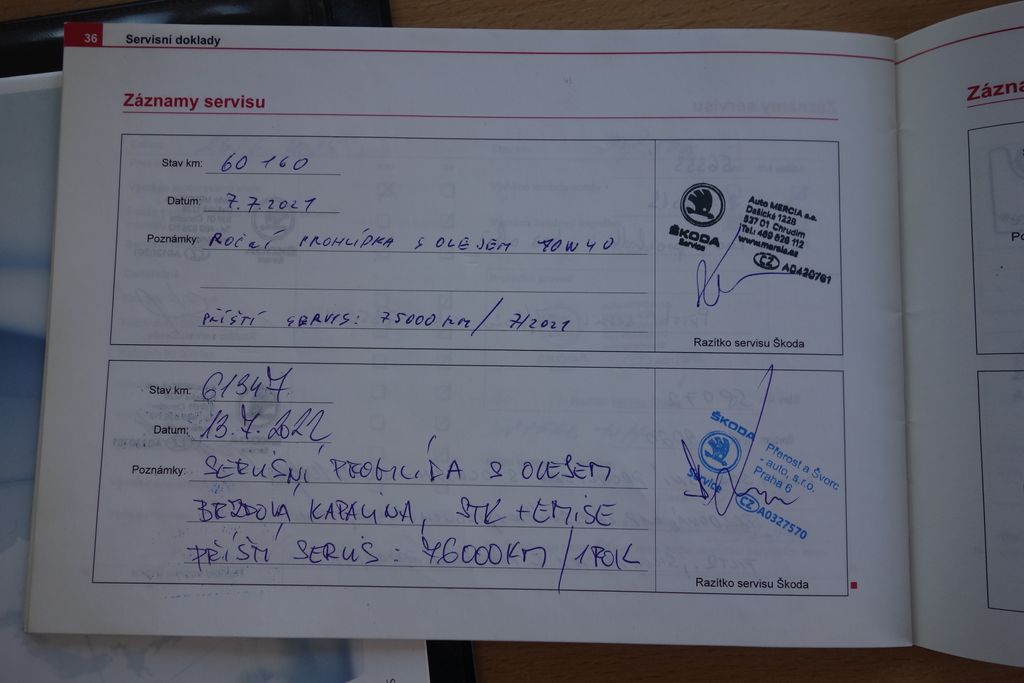 36 Servisní doklady
Záznamy servisu
Stav km: 60 160
Datum: 7.7.2021
Poznámky: ROČNÍ PROHLÍDKA S OLEJEM 10W40
PŘÍŠTÍ SERVIS: 75000 KM / 7/2021
ŠKODA
Service
Auto MERCIA a.s.
Dašická 1228
537 01 Chrudim
Tel.: 469 626 112
www.mercia.cz
CZ A0420761
Razítko servisu Škoda
Stav km: 61347
Datum: 13.7.2022
Poznámky: SERVISNÍ PROHLÍDKA S OLEJEM
BRZDOVÁ KAPALINA, STK + EMISE
PŘÍŠTÍ SERVIS: 76000KM / 1 ROK
ŠKODA
Service
Přerost a Švorc
- auto, s.r.o.
Praha 6
CZ A0327570
Razítko servisu Škoda